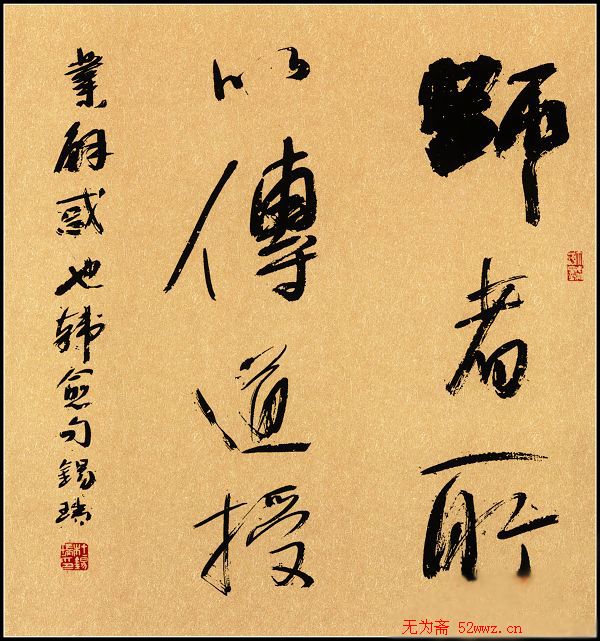 師者所
以傳道授
業解惑也韩愈句錫瑞
无为斋 52wwz.cn